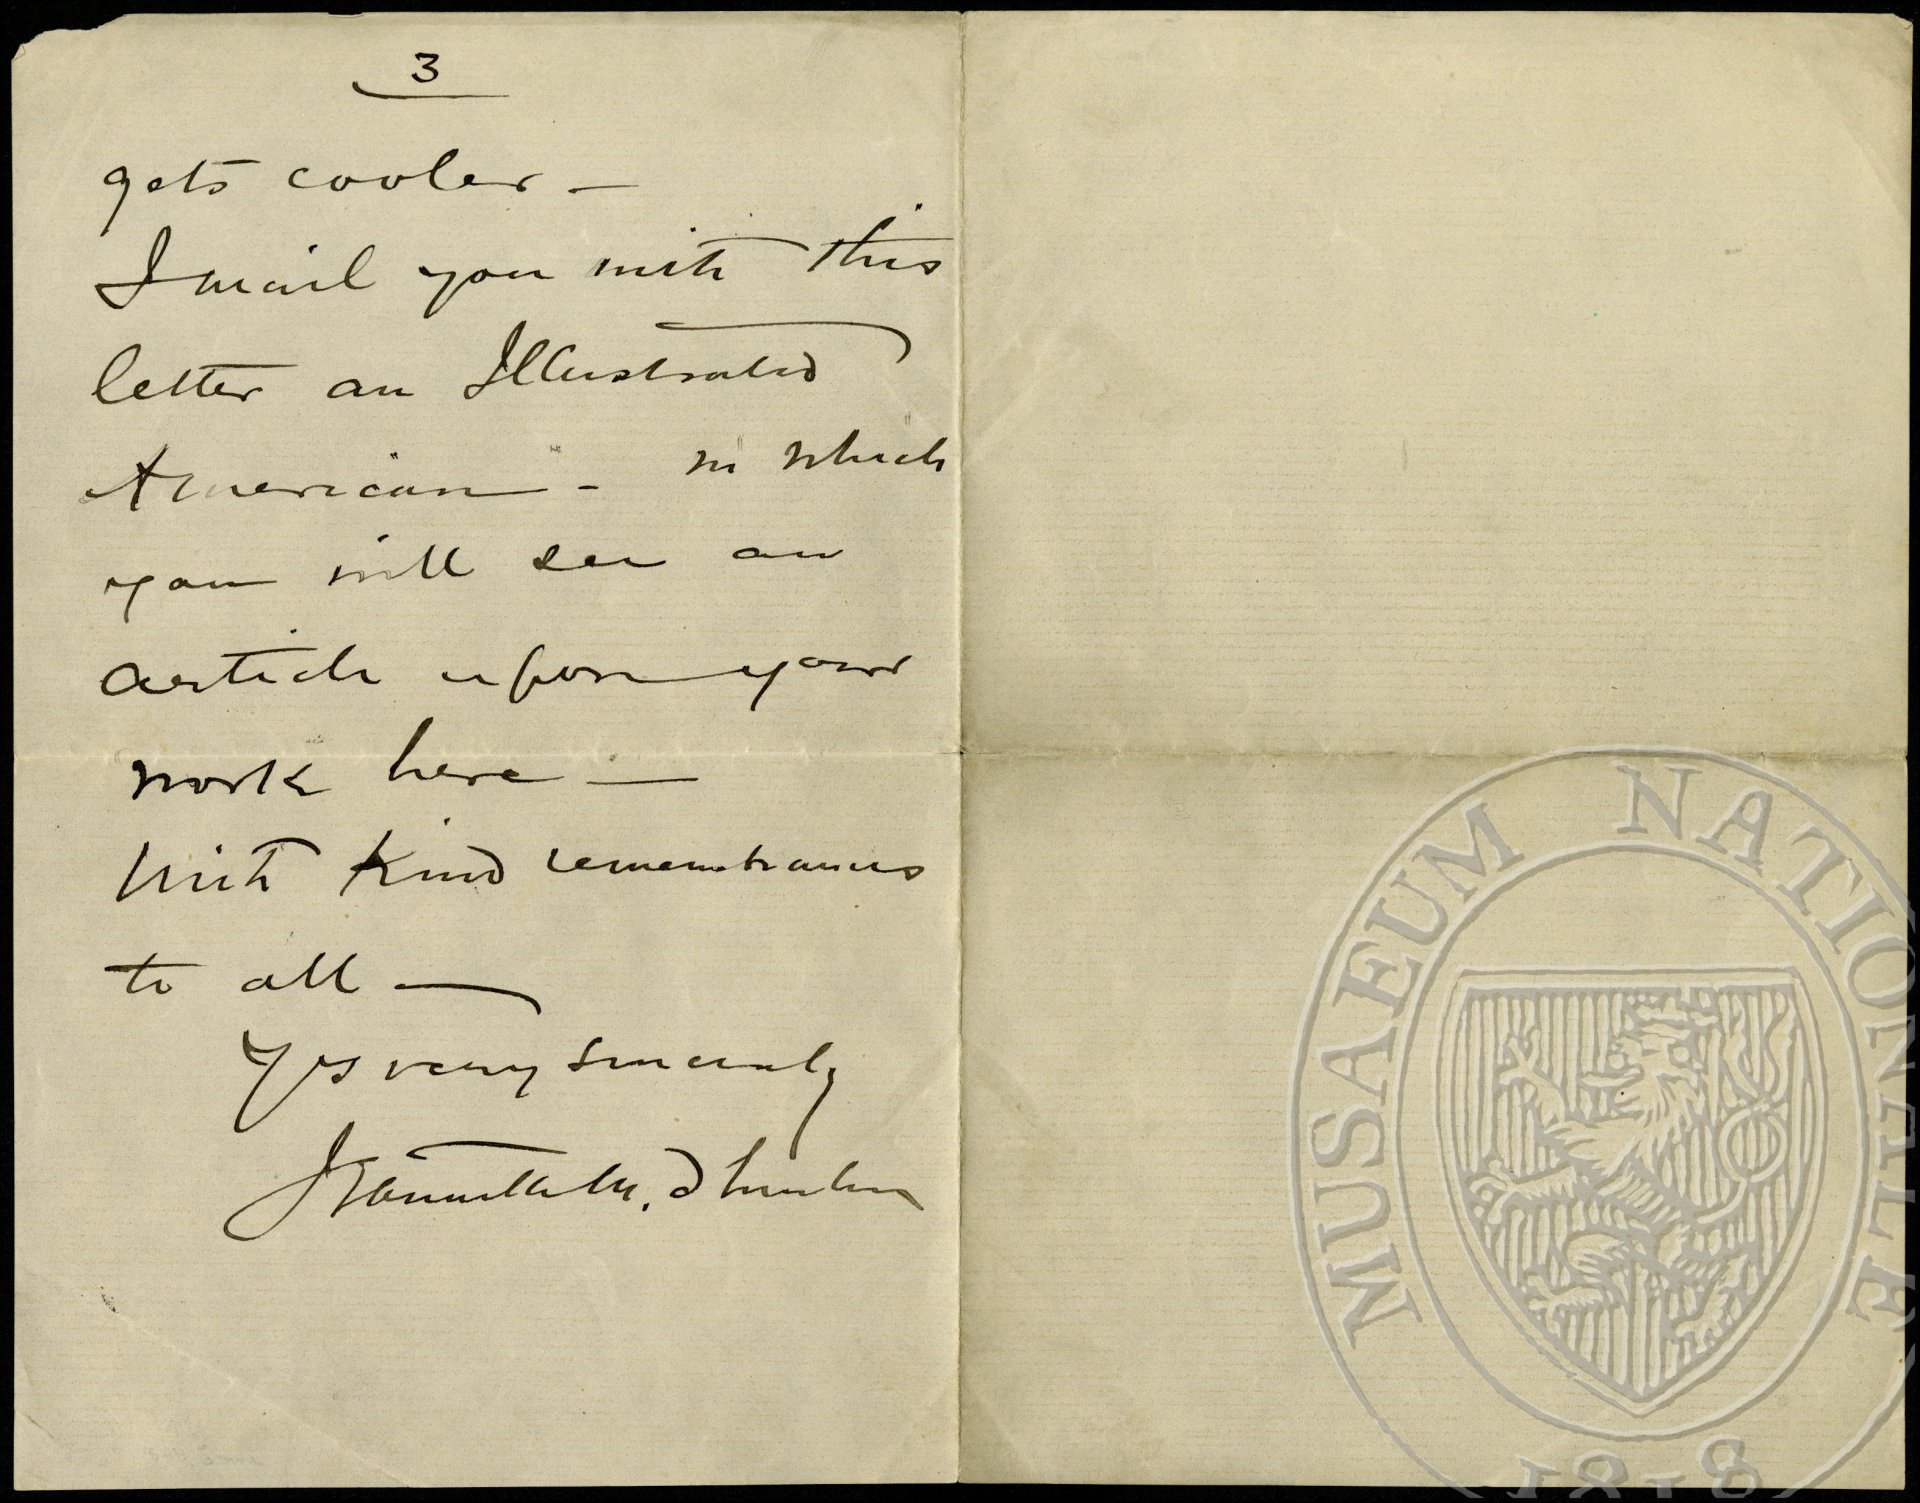 3
gets cooler —
I mail you with this
letter an Illustrated
American - in which
you will see an
article upon your
work here —
With Kind remembrances
to all —
Yrs very sincerely
Jeannette M. Thurber
MUSAEUM NATIONALE
1818